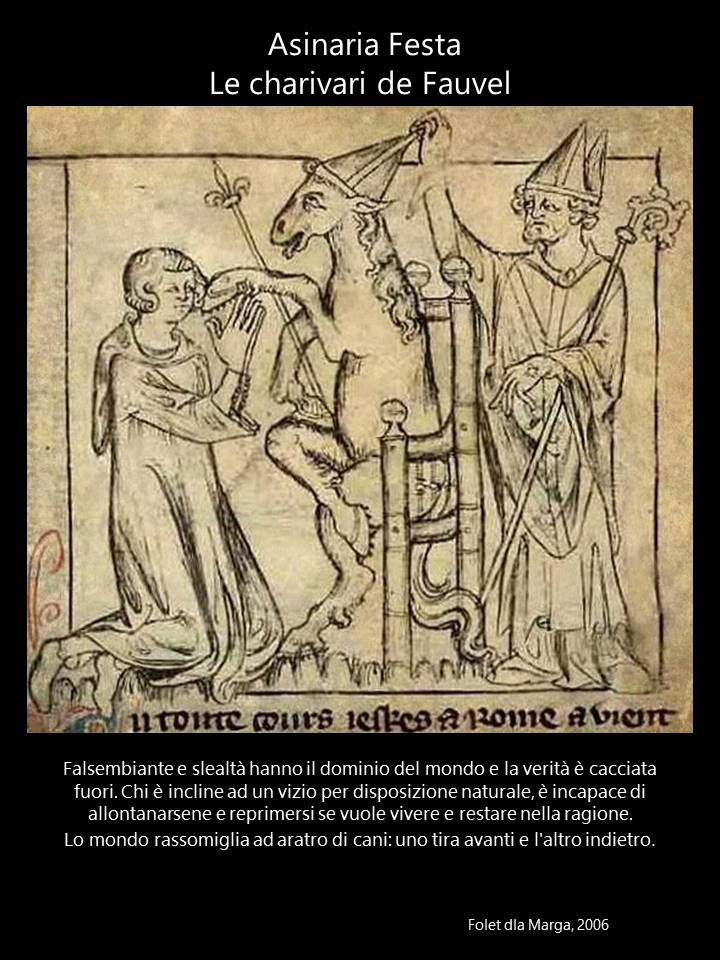 Asinaria Festa
Le charivari de Fauvel
n toute cours ieskes a Rome a vient
Falsembiante e slealtà hanno il dominio del mondo e la verità è cacciata
fuori. Chi è incline ad un vizio per disposizione naturale, è incapace di
allontanarsene e reprimersi se vuole vivere e restare nella ragione.
Lo mondo rassomiglia ad aratro di cani: uno tira avanti e l'altro indietro.
Folet dla Marga, 2006